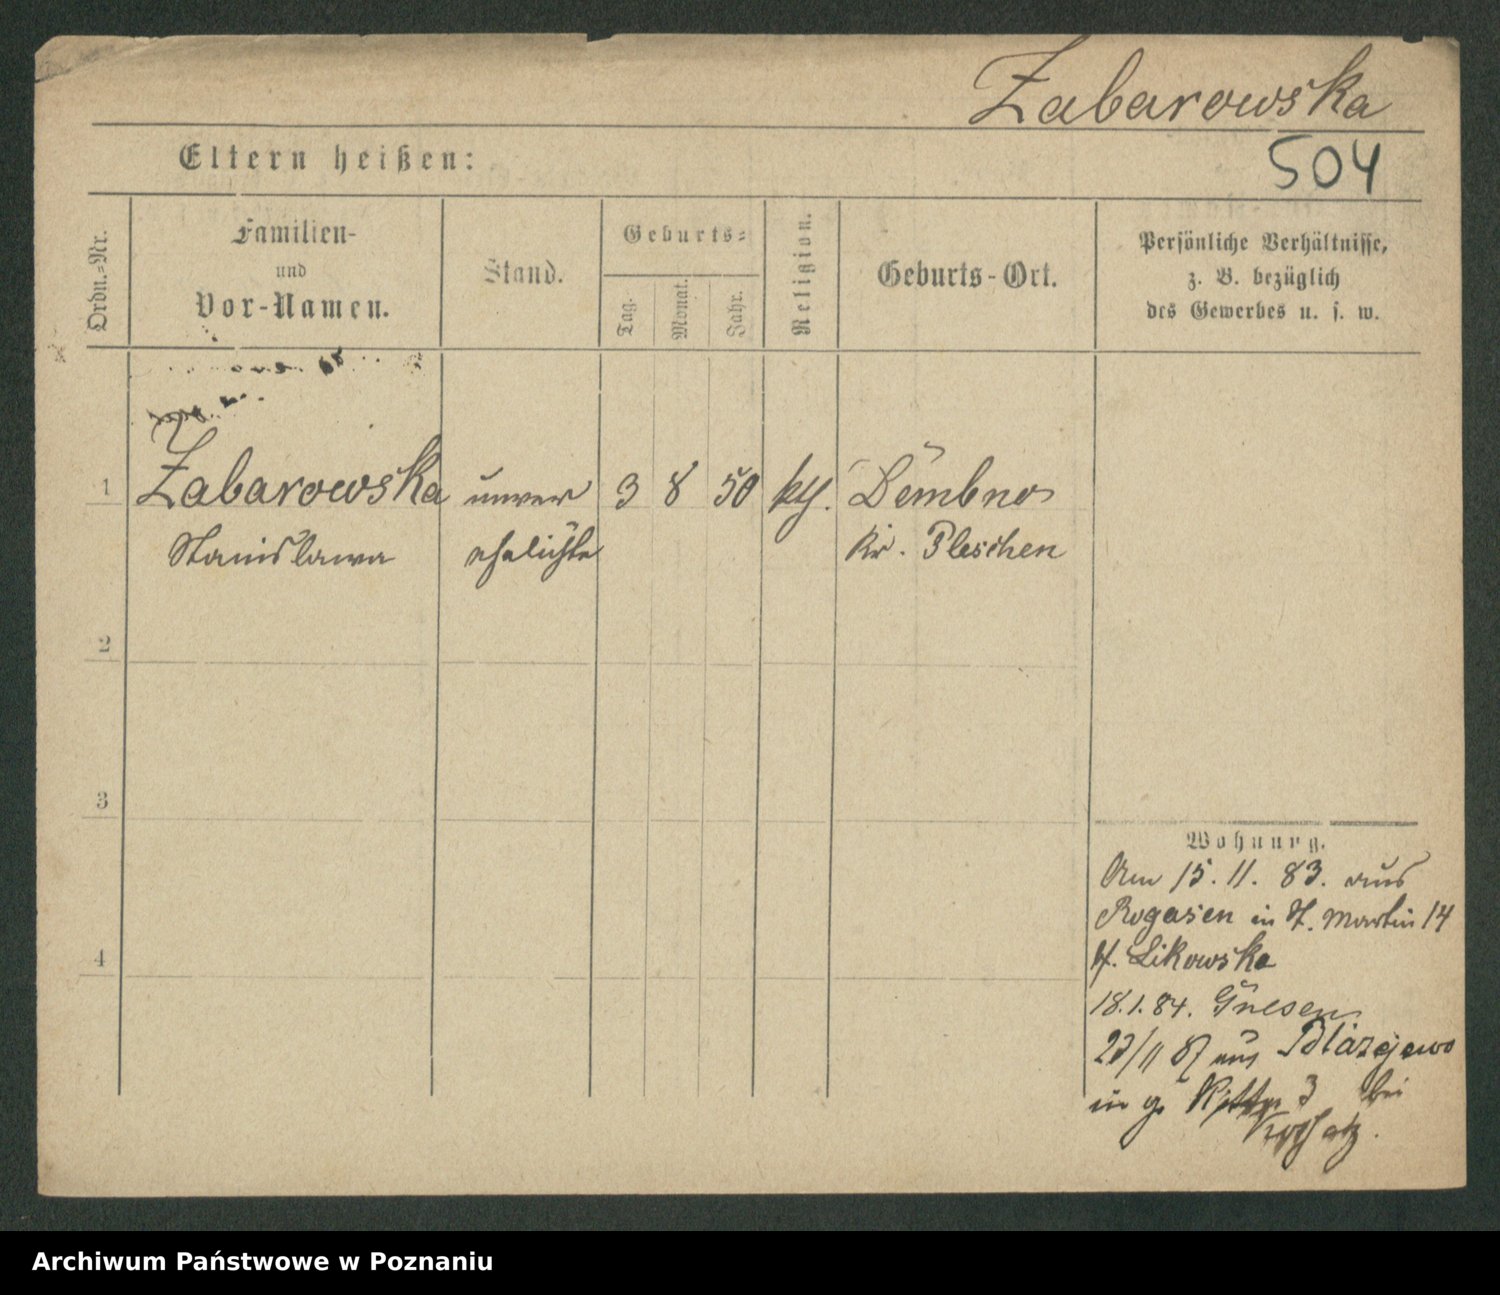 Zabarowska
504
Eltern heißen:
Ordn.-Nr.
Familien-
und
Vor-Namen.
Stand.
Geburts-
Tag.
Monat.
Jahr.
Religion.
Geburts-Ort.
Persönliche Verhältnisse,
z. B. bezüglich
des Gewerbes u. s. w.
1 Zabarowska unver 3 8 50 Dembno
Stanislawa ehelichte Kr. Pleschen
2
3
Wohnung.
Am 15. 11. 83. aus
Rogasen in St. Martin 14
b/. Likowska
4
18.1.84. Gnesen
23/11 87 aus Blazejewo
in gr 3 bei
Archiwum Państwowe w Poznaniu